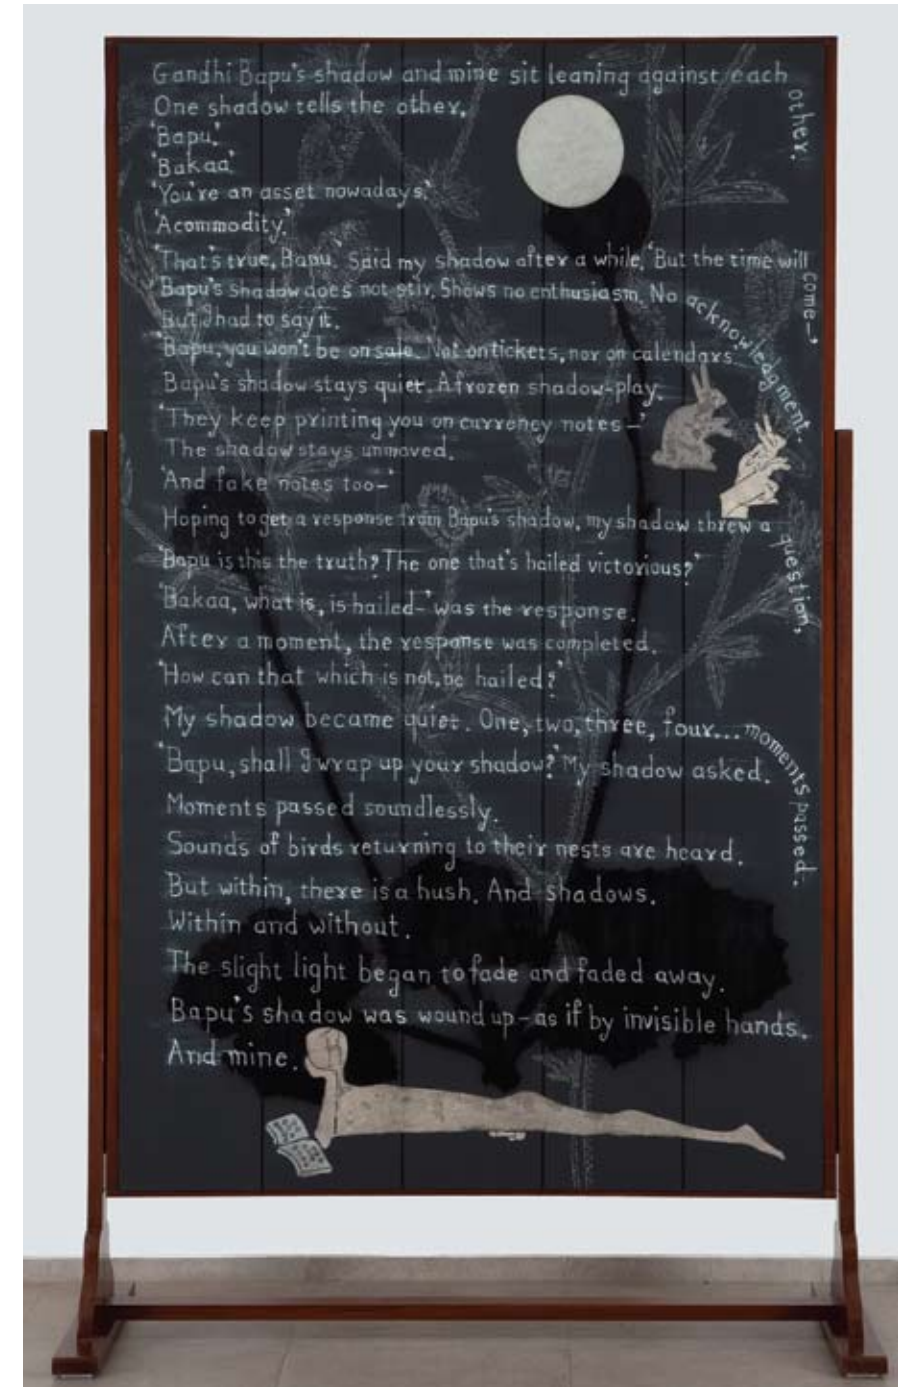 Gandhi Bapu's shadow and mine sit leaning against each other.
One shadow tells the other,
'Bapu.'
'Bakaa'
'You're an asset nowadays.'
'Acommodity.'
'That's true, Bapu.' Said my shadow after a while, 'But the time will come-,'
Bapu's shadow does not stir. Shows no enthusiasm. No acknowledgment.
But I had to say it.
'Bapu, you won't be on sale. Not on tickets, nor on calendars'
Bapu's shadow stays quiet. A frozen shadow-play.
'They keep printing you on currency notes-'
The shadow stays unmoved.
'And fake notes too-'
Hoping to get a response from Bapu's shadow, my shadow threw a question,
'Bapu is this the truth? The one that's hailed victorious?'
'Bakaa, what is, is hailed-' was the response.
After a moment, the response was completed.
'How can that which is not, be hailed?'
My shadow became quiet. One, two, three, four... moments passed.
'Bapu, shall I wrap up your shadow?' My shadow asked.
Moments passed soundlessly.
Sounds of birds returning to their nests are heard.
But within, there is a hush. And shadows.
Within and without.
The slight light began to fade and faded away.
Bapu's shadow was wound up - as if by invisible hands.
And mine.